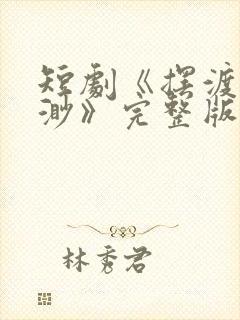 短劇《擺渡
渺》完整版
林秀君